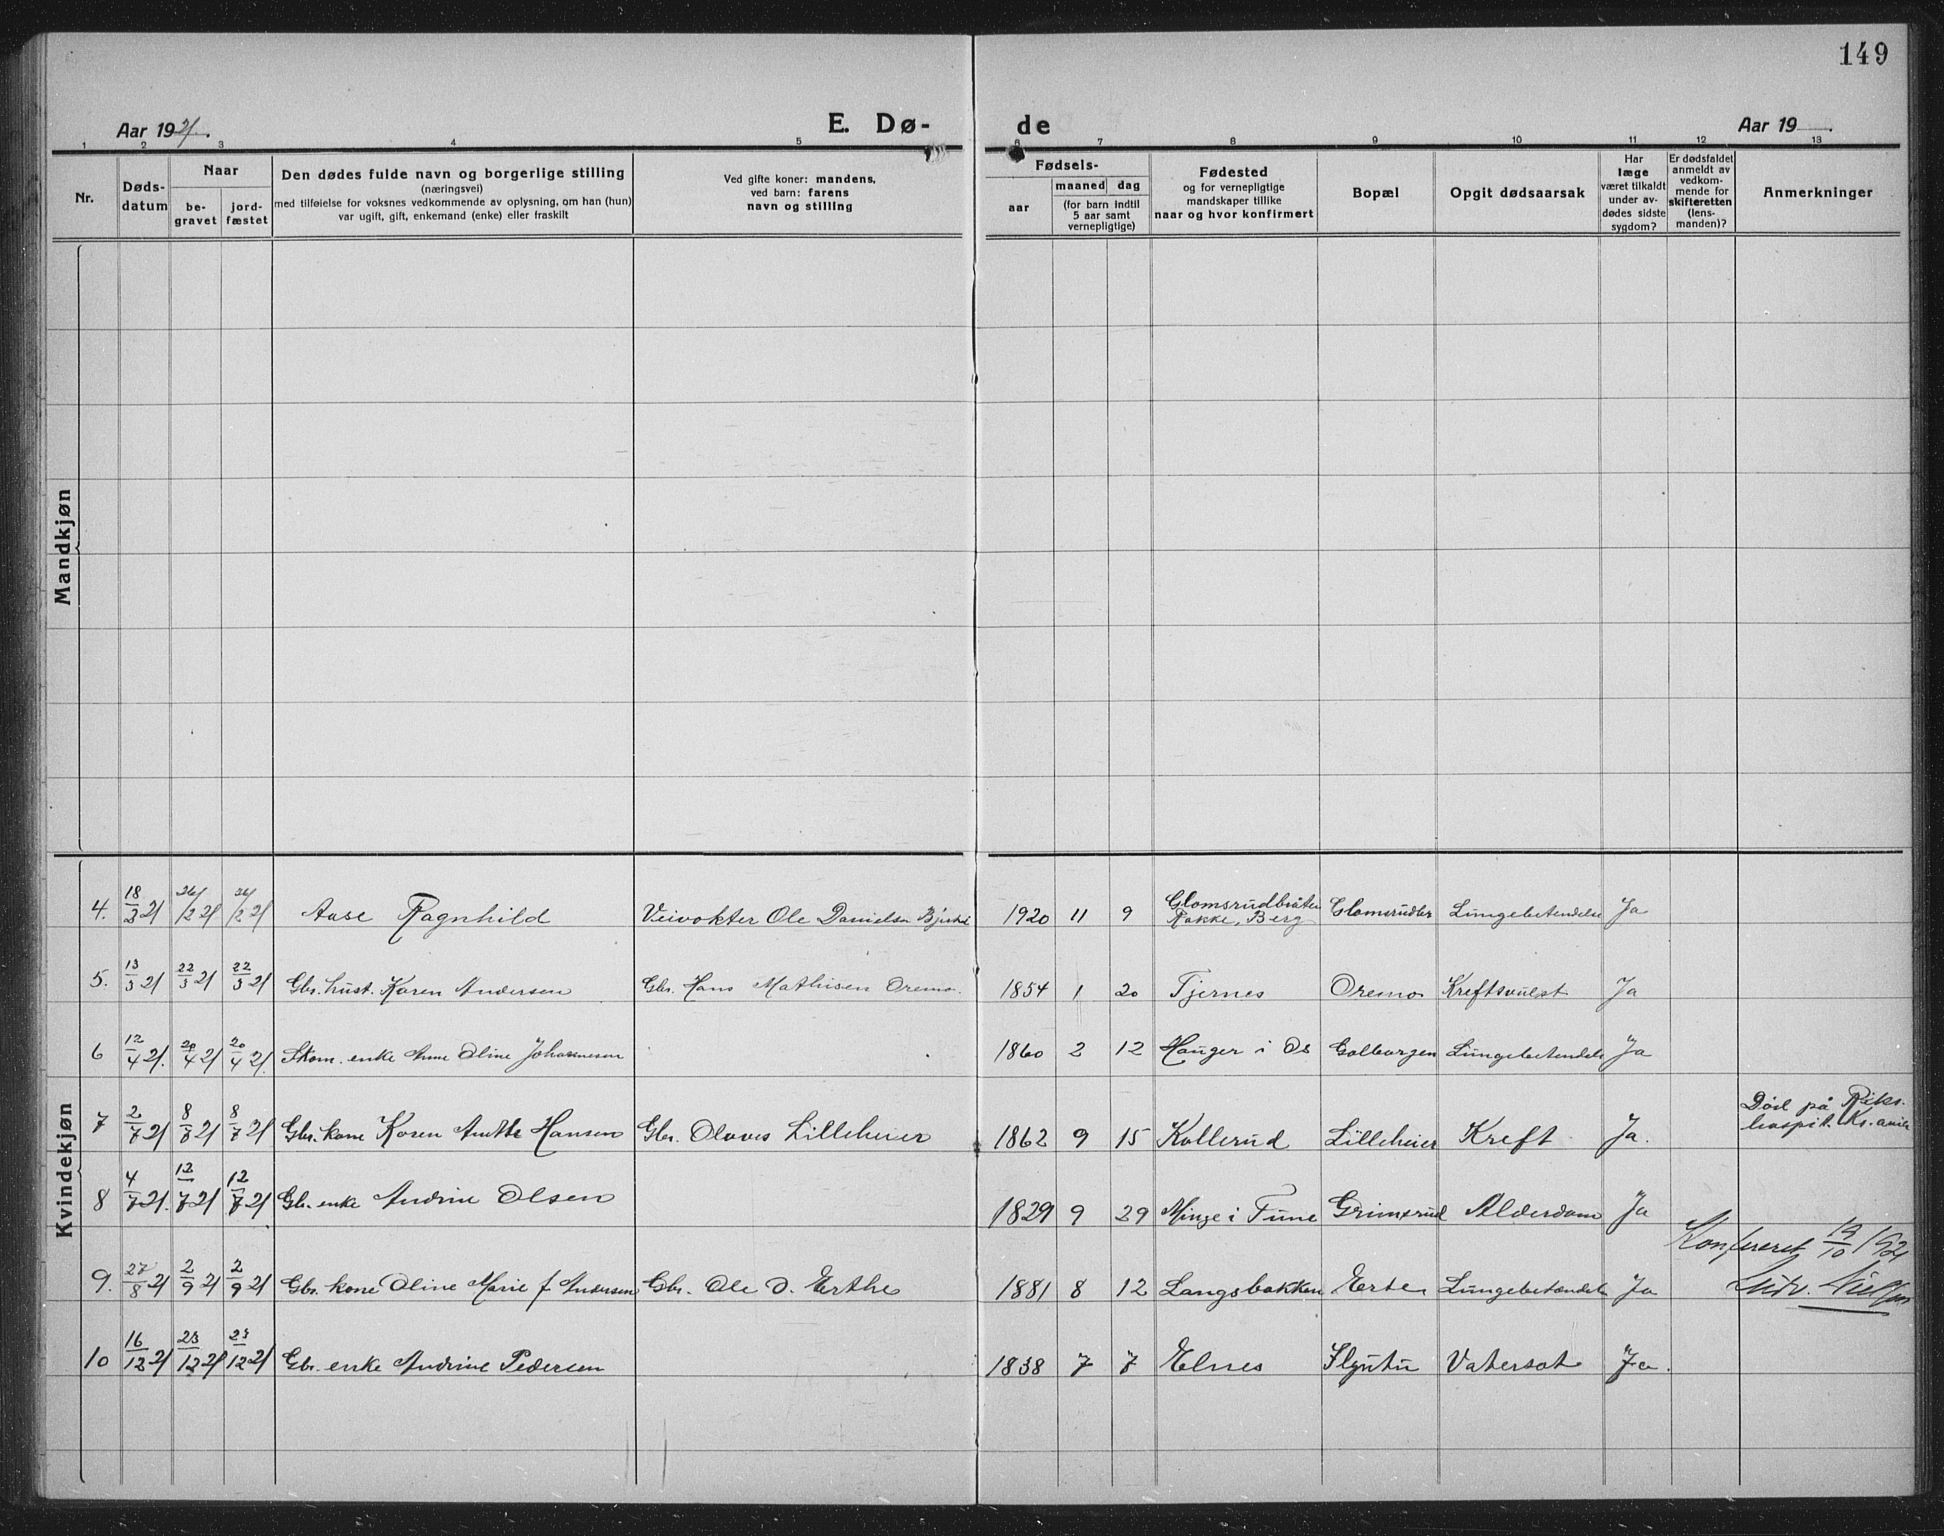 149
Aar 1921. E. Dø- de Aar 19 .
1 2 3 4 5 6 7 8 9 10 11 12 13
Nr.
Døds-
datum
Naar
be-
gravet
jord-
fæstet
Den dødes fulde navn og borgerlige stilling
(næringsvei)
med tilføielse for voksnes vedkommende av oplysning, om han (hun)
var ugift, gift, enkemand (enke) eller fraskilt
Ved gifte koner: mandens,
ved barn: farens
navn og stilling
Fødsels-
aar
maaned dag
(for barn indtil
5 aar samt
vernepligtige)
Fødested
og for vernepligtige
mandskaper tillike
naar og hvor konfirmert
Bopæl
Opgit dødsaarsak
Har
læge
været tilkaldt
under av-
dødes sidste
sygdom?
Er dødsfaldet
anmeldt av
vedkom-
mende for
skifteretten
(lens-
manden)?
Anmerkninger
Mandkjøn
Kvindekjøn
4. 18/2 21 26/2 21 26/2 21 Aase Ragnhild Veivokter Ole Danielsen 1920 11 9 Glomsrudbråten Rakke, Berg Glomsrudbr Lungebetendelse Ja
5. 13/3 21 22/3 21 22/3 21 Gbr. hust. Karen Andersen Gbr. Hans Mathisen Oremo. 1854 1 20 Tjernes Oremo Kreftsvulst Ja
6 12/4 21. 20/4 21 20/4 21. Skom. enke Anne Oline Johannesen 1860 2 12 Hauger i Os Golborgen Lungebetendels Ja
7 2/7 21 8/7 21 8/7 21 Gbr. kone Karen Anette Hansen Gbr. Olaves Lilleheier 1862 9 15 Kollerud Lilleheier Kreft Ja. Död på Riks-
hospit. Kr.ania
8 4/7 21. 12/7 21 12/7 21 Gbr. enke Andrine Olsen 1829 9 29 Minge i Tune Grimsrud Alderdom Ja
Konfereret 19/10 1921
9. 27/8 21 2/9 21 2/9 21 Gbr. kone Oline Marie f. Andersen Gbr. Ole O. Erthe 1881 8 12 Langsbakken Erte Lungebetændels Ja
10 16/12 21 23/12 21 23/12 21 Gbr. enke Andrine Pedersen 1838 7 7 Elnes Vatersot Ja.